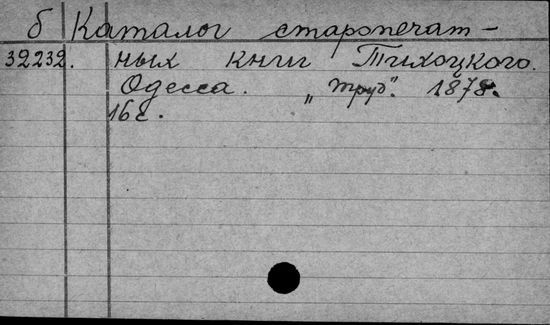 б Каталог старопечат-
32232. ных книг Тихоцкого.
Одесса. „Труд". 1878.
16 с.